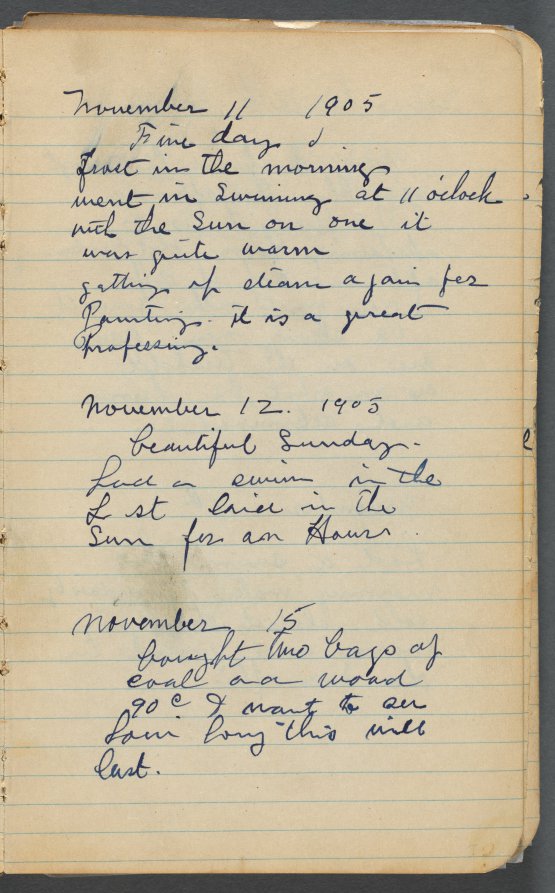 November 11 1905
Fine day
Frost in the morning
went in Swiming at 11 o'clock
with the Sun on one it
was quite warm
gathing up steam again for
Painting. it is a great
Professing.
November 12. 1905
beautiful Sunday.
had a swim in the
L st laid in the
Sun for an Hour
November 15
bought two bags of
coal and wood
90 c I want to see
how long this will
last.